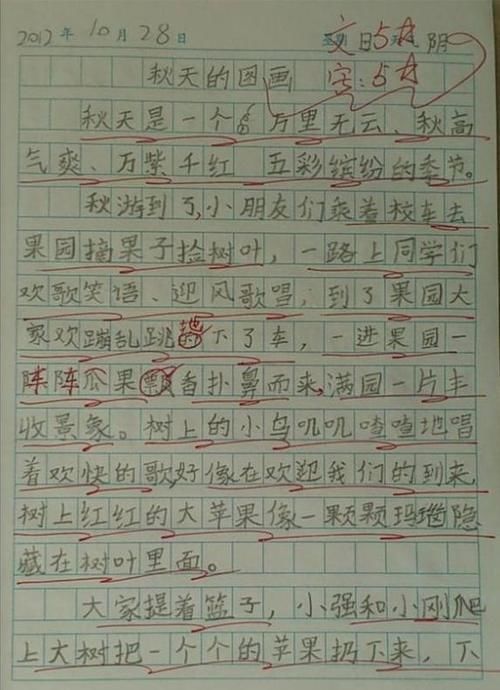 2012年10月28日 文:5大 阴
秋天的图画 字:5大
秋天是一个 万里无云、秋高
气爽、万紫千红 五彩缤纷的季节。
秋游到了,小朋友们乘着校车去
果园摘果子捡树叶,一路上同学们
欢歌笑语、迎风歌唱;到了果园大
家欢蹦乱跳地下了车,一进果园一
阵阵瓜果香扑鼻而来,满园一片丰
收景象。树上的小鸟叽叽喳喳地唱
着欢快的歌,好像在欢迎我们的到来,
树上红红的大苹果像一颗颗玛瑙隐
藏在树叶里面。
大家提着篮子,小强和小刚爬
上大树把一个个的苹果扔下来,下